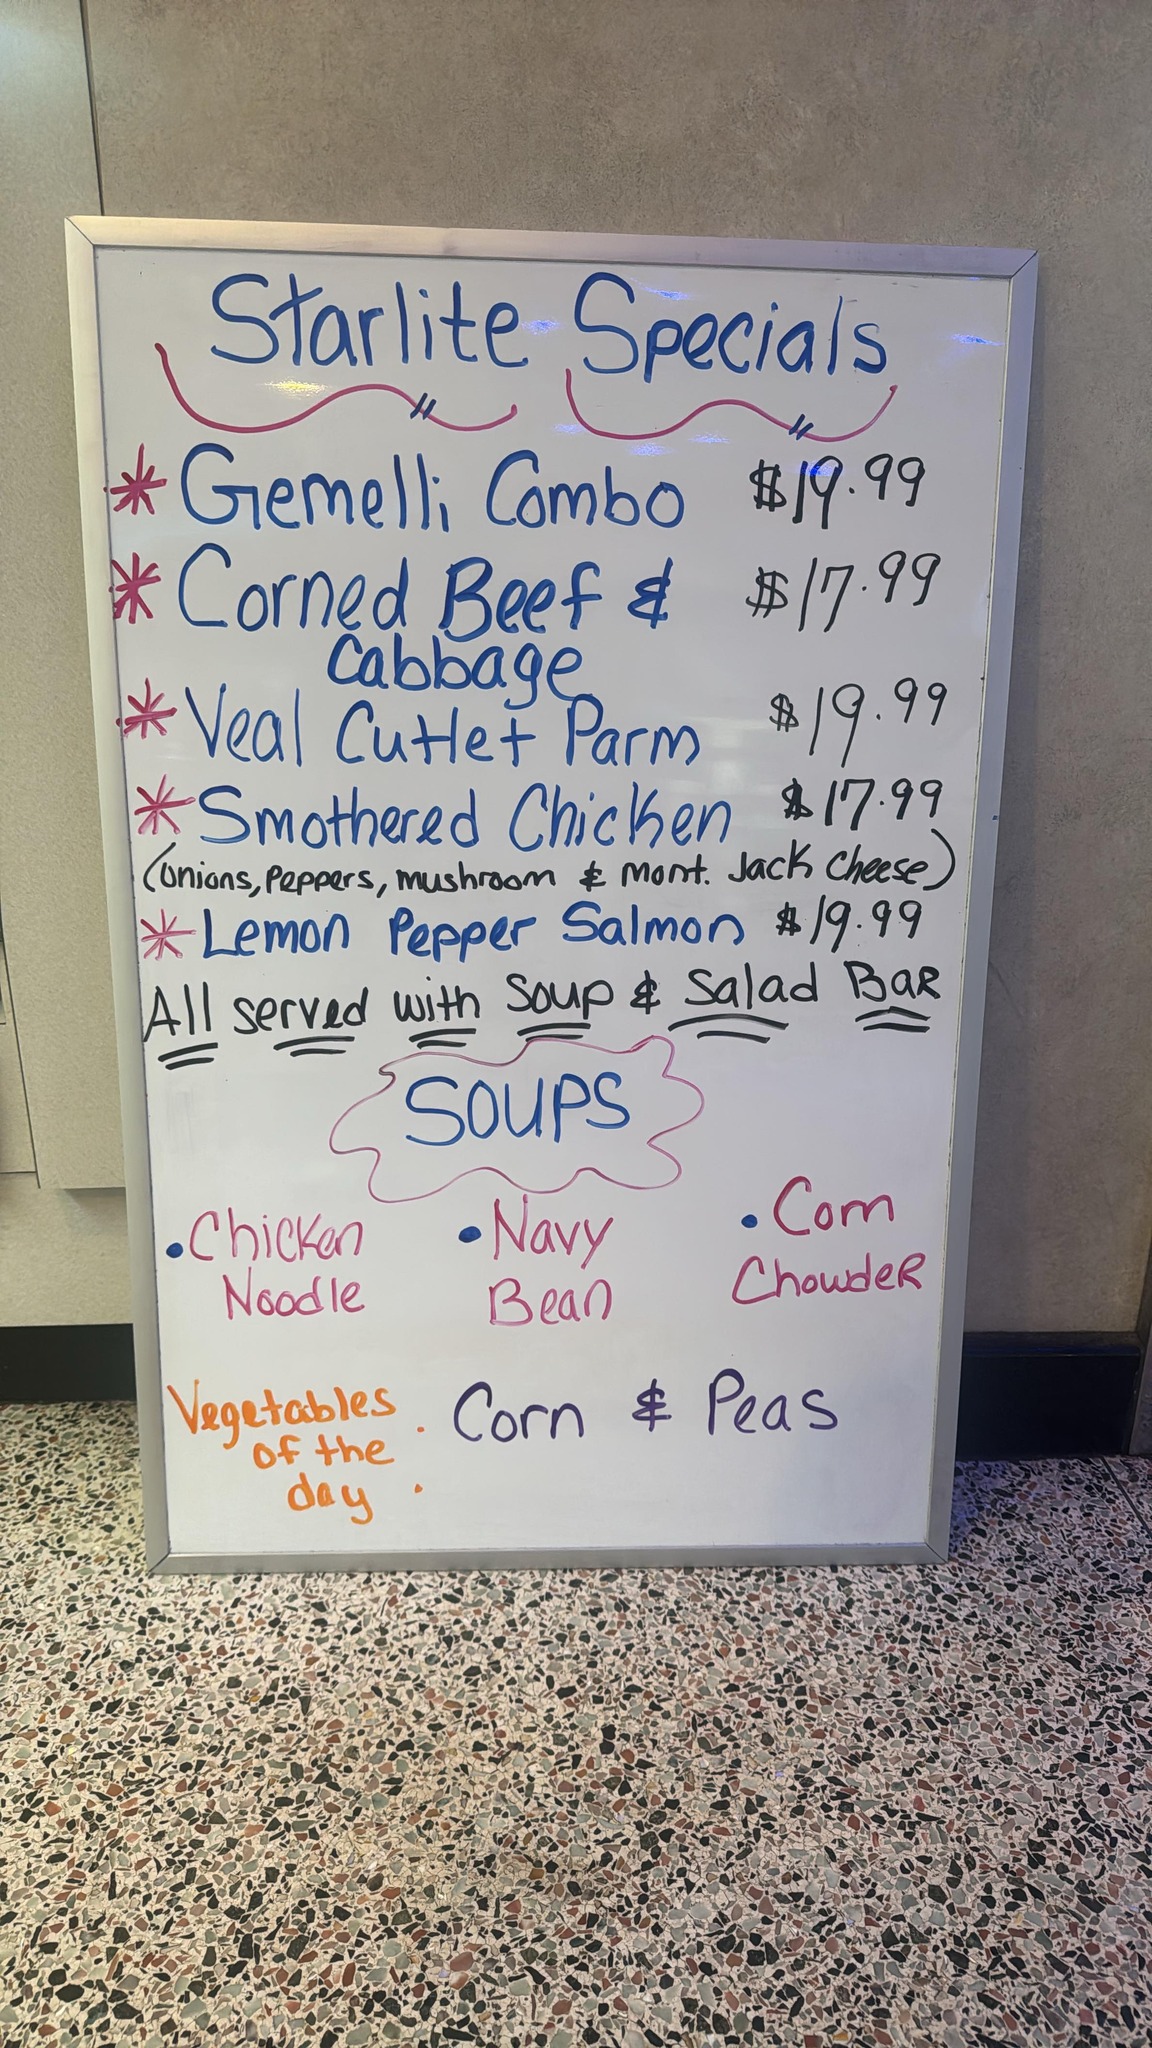 Starlite Specials
* Gemelli Combo $19.99
* Corned Beef & $17.99
Cabbage
* Veal Cutlet Parm $19.99
* Smothered Chicken $17.99
(Onions, Peppers, mushroom & Mont. Jack Cheese)
* Lemon Pepper Salmon $19.99
All served with Soup & Salad BAR
SOUPS
• Chicken • Navy • Corn
Noodle Bean ChowdeR
Vegetables : Corn & Peas
of the
day